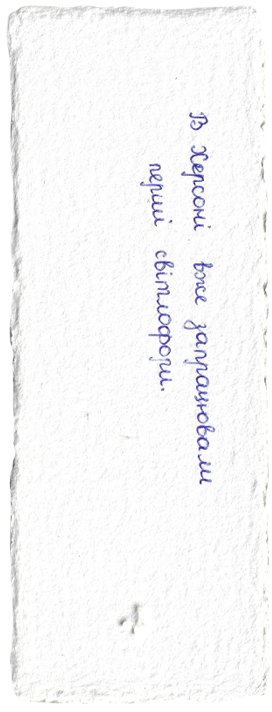 В Херсоні вже запрацювали
перші світлофори.